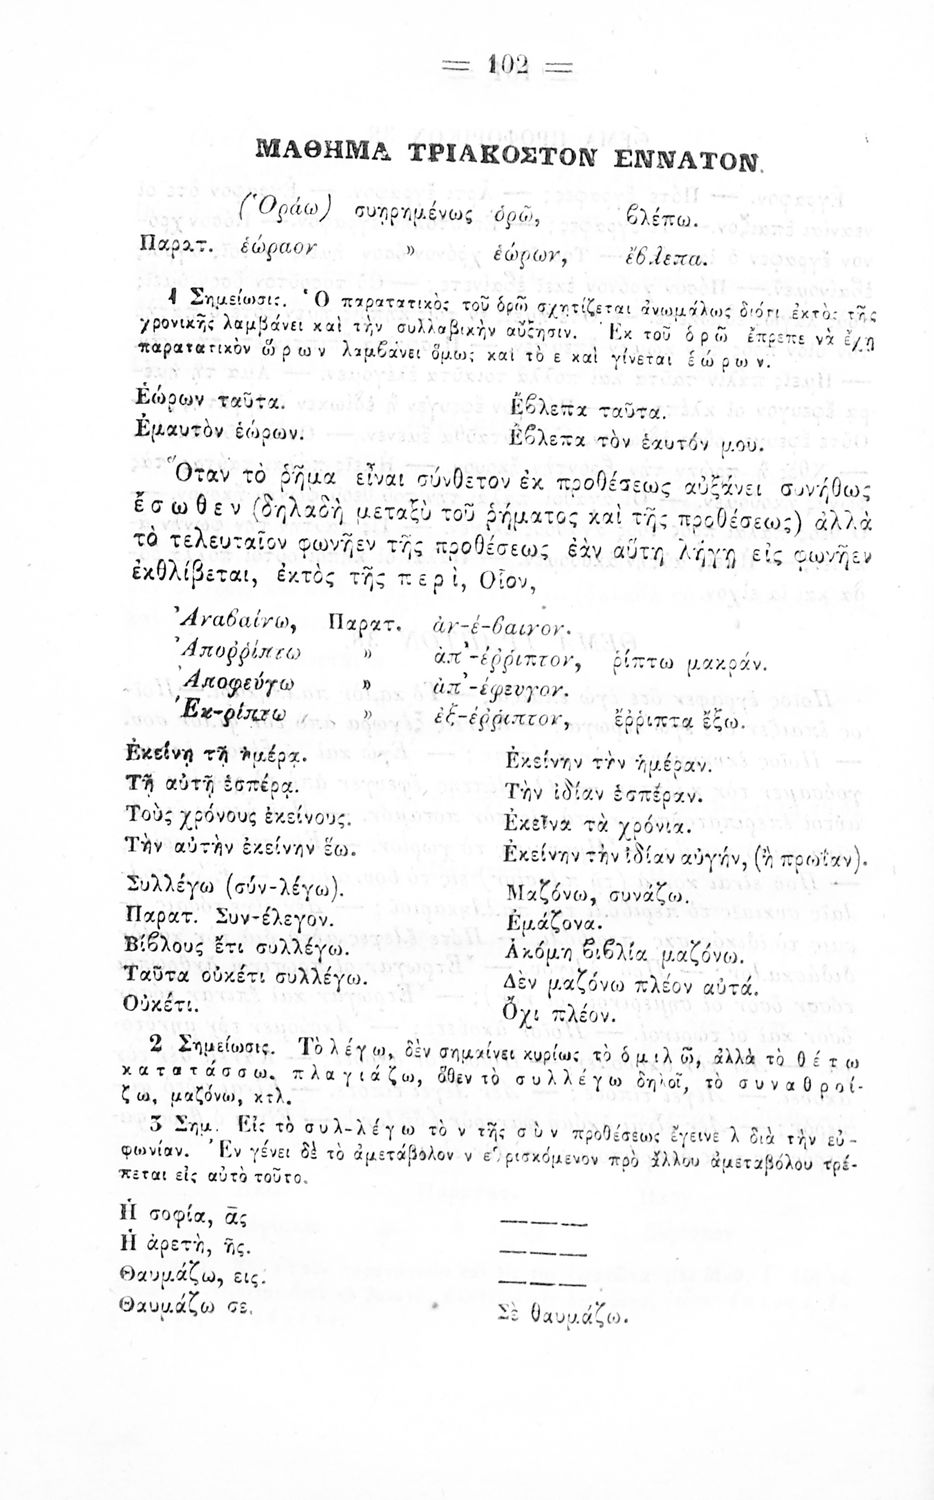 = 102 =
ΜΑΘΗΜΑ ΤΡΙΑΚΟΣΤΟΝ ΕΝΝΑΤΟΝ.
(Ὁράω) συῃρημένως ὁρῶ, βλέπω.
Παρατ. ἑώραον » ἑώρων, ἔβλεπα.
1 Σημείωσις. Ὁ παρατατικὸς τοῦ ὁρῶ σχητίζεται ἀνωμάλως διότι ἐκτὸς τῆς
χρονικῆς λαμβάνει καὶ τὴν συλλαβικὴν αὔξησιν. Ἐκ τοῦ ὁρῶ ἔπρεπε νὰ ἔχῃ
παρατατικὸν ὥρων λαμβάνει ὅμως καὶ τὸ ε καὶ γίνεται ἑώρων.
Ἑώρων ταῦτα. Ἔβλεπα ταῦτα.
Ἐμαυτὸν ἑώρων. Ἔβλεπα τὸν ἑαυτόν μου.
Ὅταν τὸ ῥῆμα εἶναι σύνθετον ἐκ προθέσεως αὐξάνει συνήθως
ἔσωθεν (δηλαδὴ μεταξὺ τοῦ ῥήματος καὶ τῆς προθέσεως) ἀλλὰ
τὸ τελευταῖον φωνῆεν τῆς προθέσεως ἐὰν αὕτη λήγῃ εἰς φωνῆεν
ἐκθλίβεται, ἐκτὸς τῆς περὶ, Οἷον,
Ἀναβαίνω, Παρατ. ἀν-έ-βαινον.
Ἀποῤῥίπτω » ἀπ'-έῤῥιπτον, ρίπτω μακράν.
Ἀποφεύγω » ἀπ'-έφευγον.
Ἐκ-ρίπτω, » ἐξ-έῤῥιπτον, ἔῤῥιπτα ἔξω.
Ἐκείνῃ τῇ ἡμέρᾳ. Ἐκείνην τὴν ἡμέραν.
Τῇ αὐτῇ ἑσπέρᾳ. Τὴν ἰδίαν ἑσπέραν.
Τοὺς χρόνους ἐκείνους. Ἐκεῖνα τὰ χρόνια.
Τὴν αὐτὴν ἐκείνην ἕω. Ἐκείνην τὴν ἰδίαν αὐγήν, (ἢ πρωΐαν).
Συλλέγω (σύν-λέγω). Μαζόνω, συνάζω.
Παρατ. Συν-έλεγον. Ἐμάζονα.
Βίβλους ἔτι συλλέγω. Ἀκόμη βιβλία μαζόνω.
Ταῦτα οὐκέτι συλλέγω. Δὲν μαζόνω πλέον αὐτά.
Οὐκέτι. Ὄχι πλέον.
2 Σημείωσις. Τὸ λέγω, δὲν σημαίνει κυρίως τὸ ὁμιλῶ, ἀλλὰ τὸ θέτω
κατατάσσω. πλαγιάζω, ὅθεν τὸ συλλέγω δηλοῖ, τὸ συναθροί-
ζω, μαζόνω, κτλ.
3 Σημ. Εἰς τὸ συλ-λέγω τὸ ν τῆς σὺν προθέσεως ἔγεινε λ διὰ τὴν εὐ-
φωνίαν. Ἐν γένει δὲ τὸ ἀμετάβολον ν εὑρισκόμενον πρὸ ἄλλου ἀμεταβόλου τρέ-
πεται εἰς αὐτὸ τοῦτο.
Ἡ σοφία, ᾶς ———
Ἡ ἀρετὴ, ῆς. ———
Θαυμάζω, εις. ———
Θαυμάζω σε. Σὲ θαυμάζω.